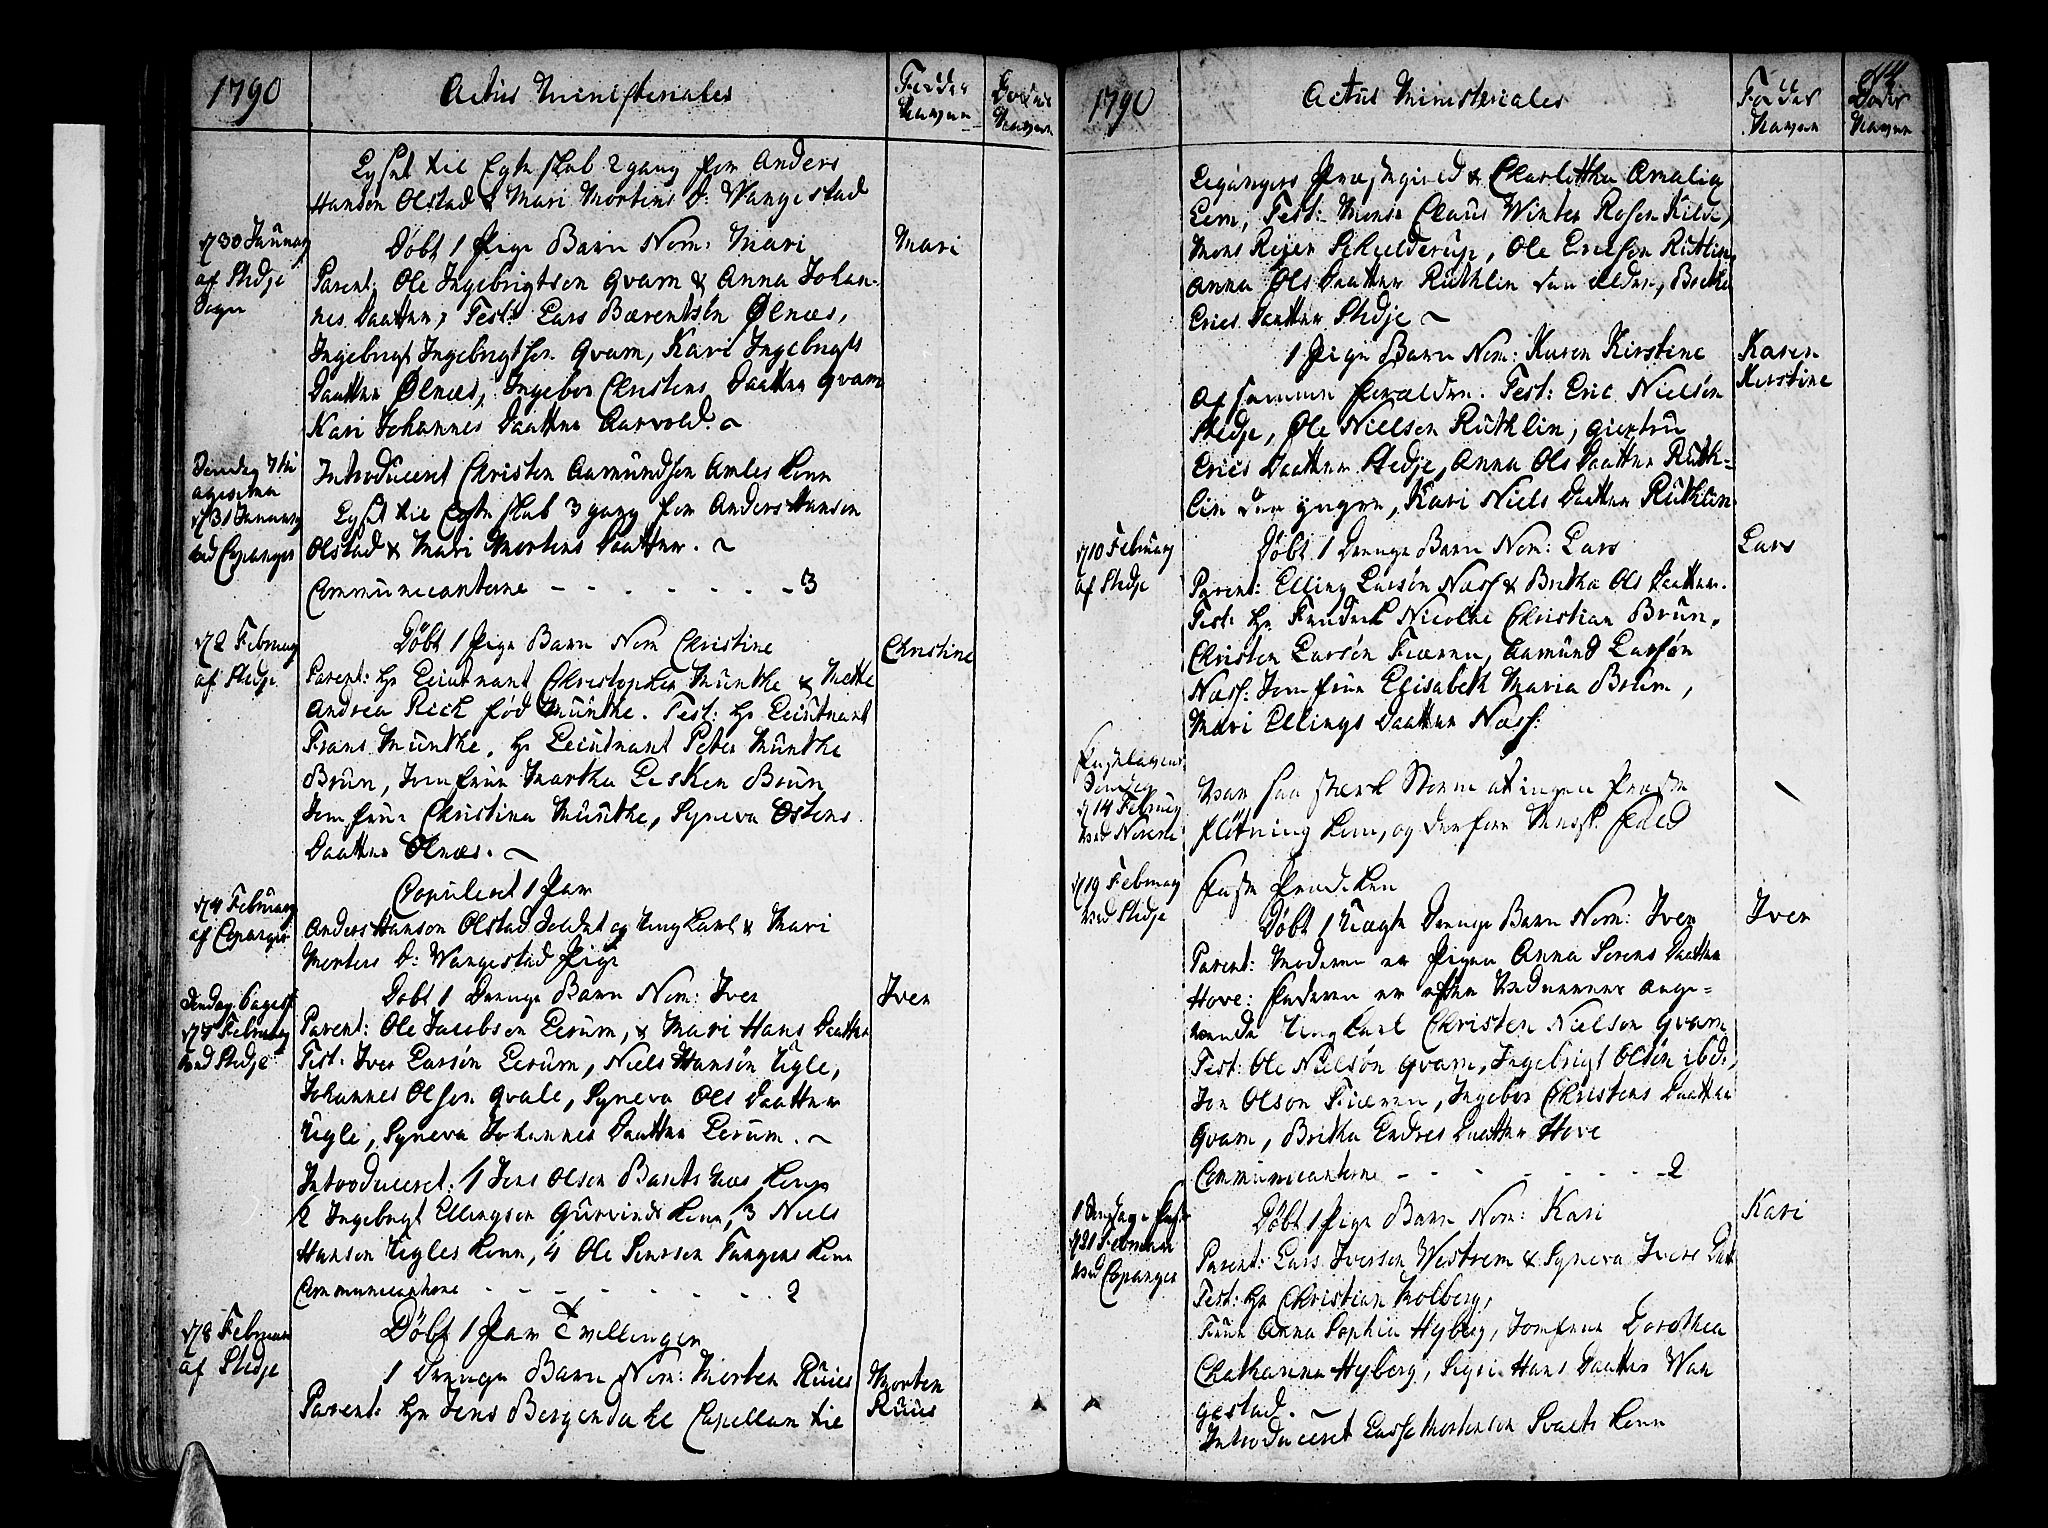 1790
Actus Ministeriales
Fødder
Navne
Dødes
Navne
Lyset til Egteskab 2 gang for Anders
Hansen Olstad & Mari Mortens D: Wangestad
d 30 Januarij
af Stedje
Sogn
Døbt 1 Pige Barn Nom: Mari
Mari
Parent: Ole Ingebrigtsen Qvam & Anna Johan-
nes Daatter, Test: Lars Bærentsön Ølnæs,
Ingebrigt Ingebrigtsen Qvam, Kari Ingebrigts
Daatter Ølnæs, Ingebor Christens Daatter Qvam
Kari Johannes Daatter Aarvold.
Introduceret Christen Aamundsen Amles Kone
d 31 Januarij
ved Copanger
Lyset til Egteskab 3 gang for Anders Hansen
Olstad & Mari Mortens Daatter.
Communicanterne - - - - - - - 3
d 2 Februarij
af Stedje
Døbt 1 Pige Barn Nom Christine
Christine
Parent: Hr Lieutnant Christopher Munthe & Mette
Andrea Rick fød Munthe. Test: Hr Lieutnant
Frans Munthe, Hr Lieutnant Peter Munthe
Brun, Jomfrue Martha Lesken Brun
Jomfrue Christina Munthe, Syneva Ostens
Daatter Ølnæs.
d 4 Februarij
af Copanger
Copuleret 1 Par
Anders Hanson Olstad Soldat og Ung Karl & Mari
Mortens D: Wangestad Pige
d 7 Februarij
ved Stedje
Døbt 1 Drenge Barn Nom: Iver
Iver
Parent: Ole Jacobsen Lerum, & Mari Hans Daatter
Test: Iver Larsön Lerum, Niels Hansön Ugle,
Johannes Olsen Qvale, Syneva Ols Daatter
Ugle, Syneva Johannes Daatter Lerum.
Introduceret: 1 Jens Olsen Barsnes Kone
2 Ingebrigt Ellingsen Gurvinds Kone, 3 Niels
Hansen Ugles Kone, 4 Ole Tangens Kone
Communicanterne - - - - - - - 2
d 8 Februarij
af Stedje
Døbt 1 Par Tvillinger
1 Drenge Barn Nom: Morten Ruus
Morten
Ruus
Parent: Hr Jens Bergendahl Capellan til
1790
Actus Ministeriales
Fødder
Navne
Dødes
Navne
Leganger Præstegield & Charlotha Amalia
Lem, Test: Monsr Claus Winter Rosenkilde,
Mons Reier Schielderup, Ole Ericson Ruthlin
Anna Ols Daatter Ruthlin den eldre, Britha
Erics Daatter Stedje
1 Pige Barn Nom: Karen Kirstine
Karen
Kirstine
af samme Forældre. Test: Eric Nielsön
Stedje, Ole Nielsen Ruthlin, Giertru
Erics Daatter Stedje, Anna Ols Daatter Ruth-
lin den yngre, Kari Niels Daatter Ruthlin
d 10 Februarij
af Stedje
Døbt 1 Drenge Barn Nom: Lars
Lars
Parent: Elling Larsön Næss & Britha Ols Daatter.
Test: Hr Fridrich Nicolai Christian Brun,
Christen Larsön Fiæren, Aamund Larsön
Næss: Jomfrue Elisabeth Maria Brun,
Mari Ellings Daatter Næss:
Fastelavns
Søndag
d 14 Februarij
ved Norene
Var saa sterk Storm at ingen Præste
flötning kom, og derfore Messe Fald
d 19 Februarij
ved Stedje
Faste Prædiken
Døbt 1 Uægte Drenge Barn Nom: Iver
Iver
Parent: Moderen er Pigen Anna Sørens Daatter
Hove: Faderen er efter Angi-
vende Ung Karl Christen Nielsen Qvam
Test: Ole Nielsön Qvam, Ingebrigt Olsön ibd:,
Jon Olson Fiæren, Ingebor Christens Daatter
Qvam, Britha Endres Daatter Hove
Communicanterne - - - - - - - 2
1 Søndag i Faste
d 21 Februarij
ved Copanger
Døbt 1 Pige Barn Nom: Kari
Kari
Parent: Lars Iversen Westrem & Syneva Ivers Datt
Test: Hr Christian Molberg,
Frue Anna Sophia Hyberg, Jomfrue Dorothea
Chatharina Hyberg, Sigri Hans Daatter Wan
gestad.
Introduceret Lasse Mortenson Kone